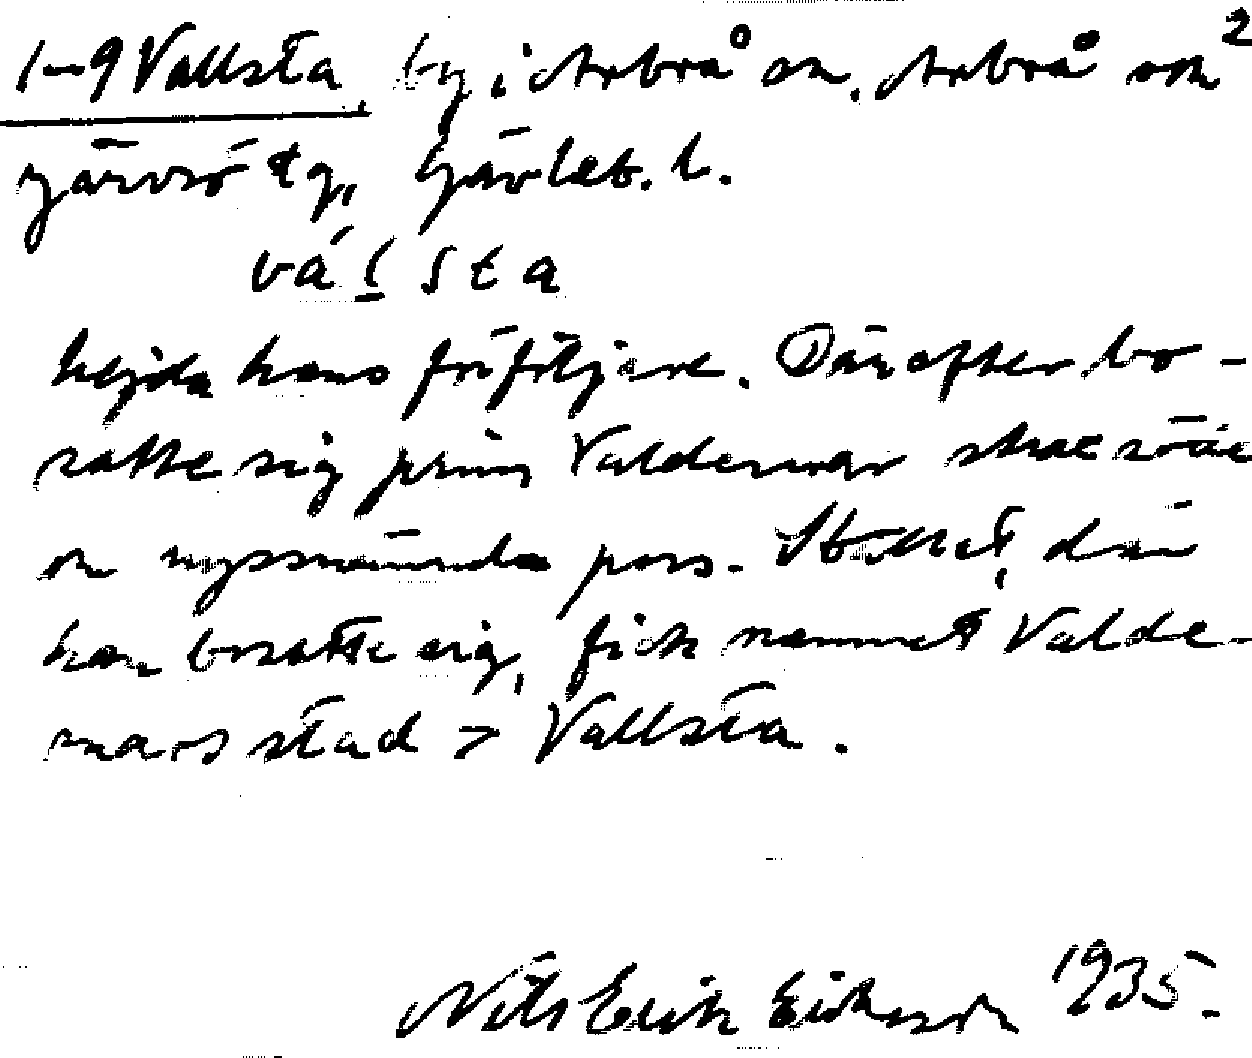 1-9 Vallsta, by i Arbrå sn. Arbrå och 2
Järvsö tg, Gävleb. l.
vá l sta
hejda hans förföljare. Därefter bo-
satte sig prins Valdemar strax söder
om nyssnämnda pass. Stället, där
han bosatte sig, fick namnet Valde-
mars stad > Vallsta.
Nils Erik Eriksson 1935.